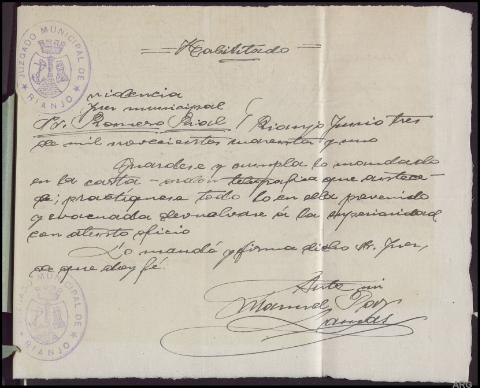 JUZGADO MUNICIPAL DE
RIANJO
Habilitado
Providencia
Juez municipal
Sr. Romero Rial / Rianjo Junio tres
de mil novecientos cuarenta y uno
Guardese y cumpla lo mandado
en la carta-orden telegrafica que antece-
de; practiquese todo lo en ella prevenido
y evacuada devuelvase á la superioridad
con atento oficio
Lo mandó y firma dicho Sr. Juez,
de que doy fé.
Ante mi
Manuel
JUZGADO MUNICIPAL DE
RIANJO
ARG